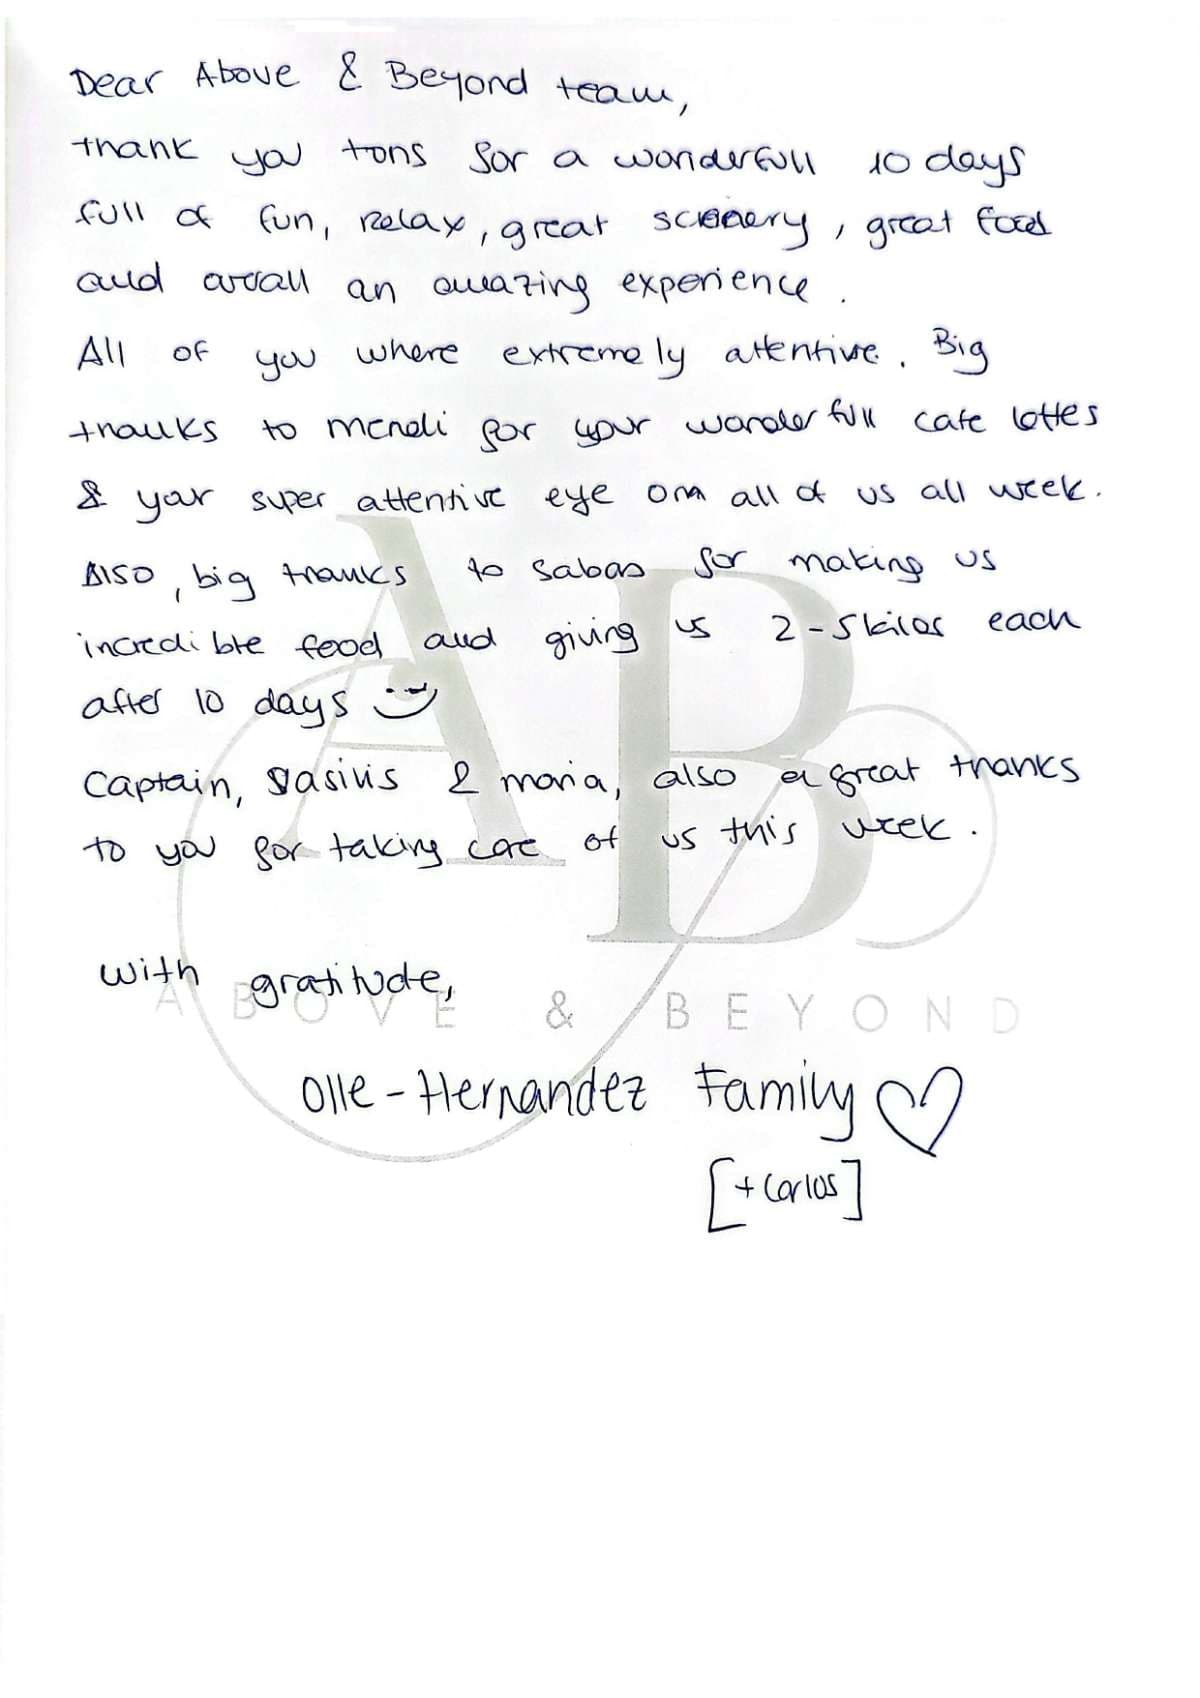 Dear Above & Beyond team,
thank you tons for a wonderfull 10 days
full of fun, relax, great scenery, great food
and overall an amazing experience.
All of you where extremely attentive. Big
thanks to Mendi for your wonderfull cafe lattes
& your super attentive eye on all of us all week.
Also, big thanks to Sabas for making us
incredible food and giving us 2-5 kilos each
after 10 days
Captain, Vasilis & Maria, also a great thanks
to you for taking care of us this week.
With gratitude,
AB
ABOVE & BEYOND
Olle-Hernandez Family
[+ Carlos]